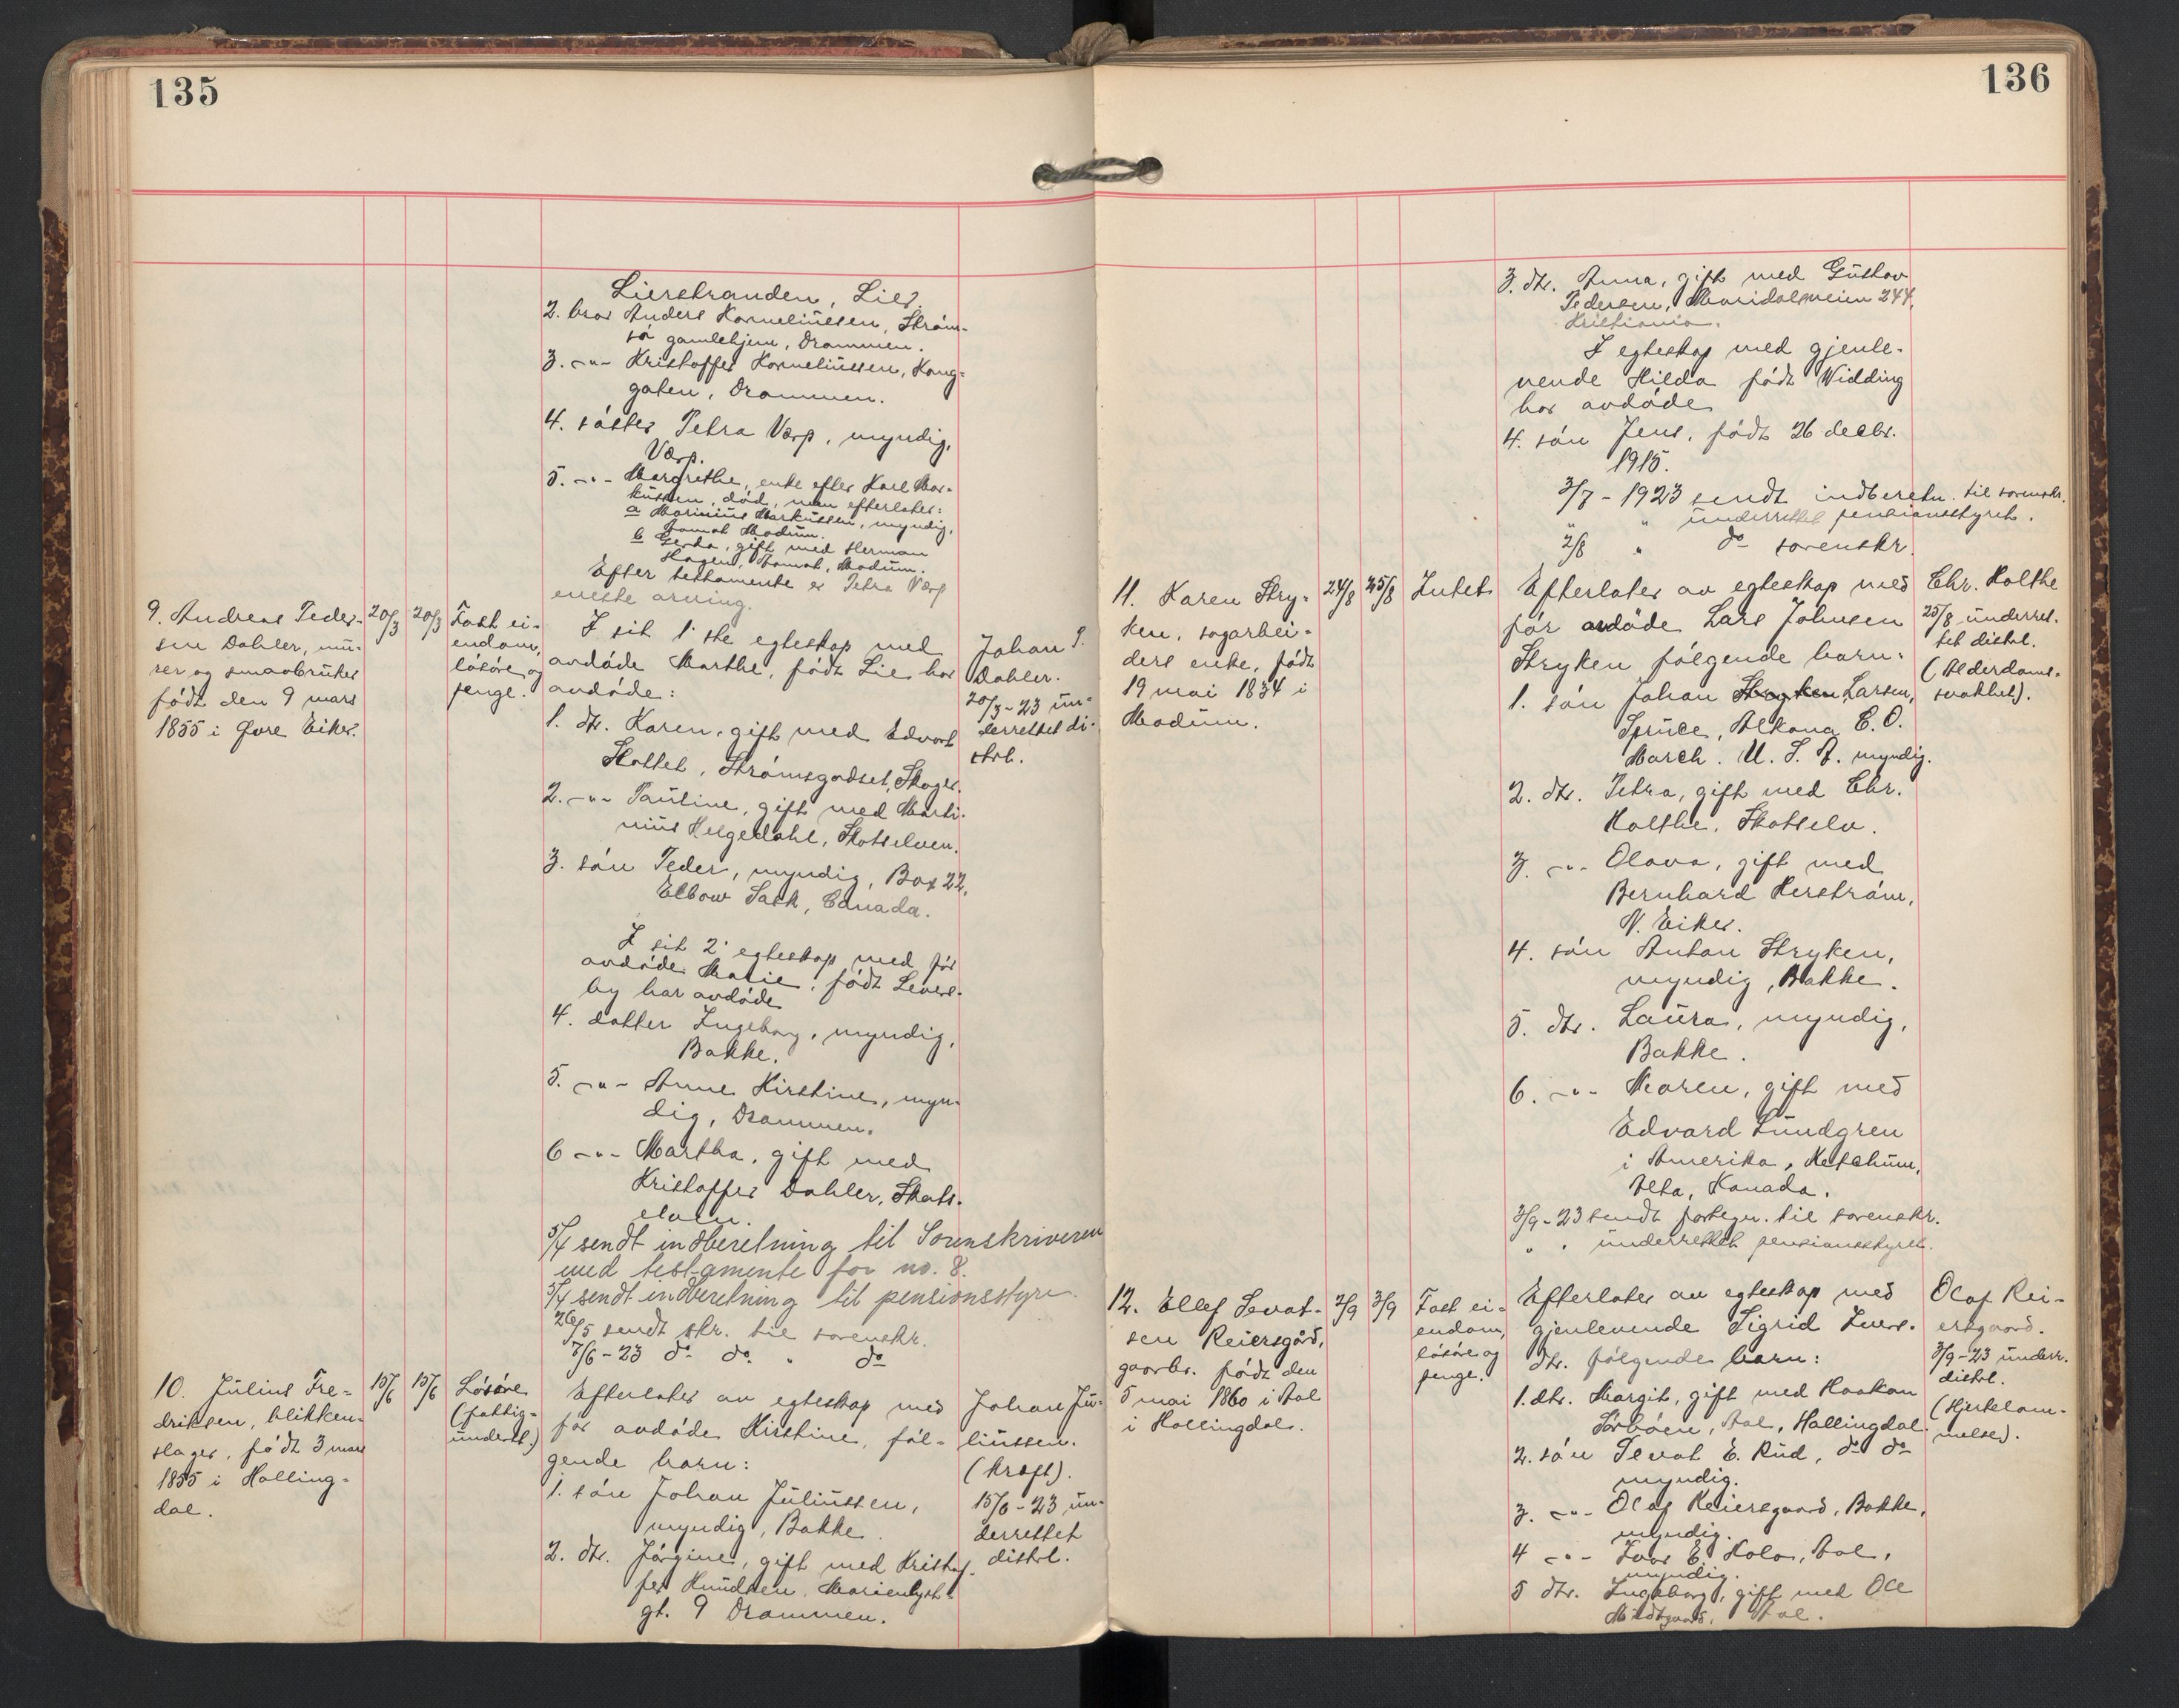 135
Lierstranden, Lier.
2. bror Anders Korneliussen, Strøm-
sø gamlehjem, Drammen.
3. -"- Kristoffer Korneliussen, Kong-
gaten, Drammen.
4. søster Petra Værp, myndig,
Værp.
5. -"- Margrethe, enke efter Karl Mar-
kussen, død, men efterlater:
a Marinius Markussen, myndig,
Aamot Modum.
b Gerda, gift med Herman
Hagen, Aamot, Modum.
Efter testamente er Petra Værp
eneste arving.
9. Andreas Peder-
sen Dahler, mu-
rer og smaabruker
født den 9 mars
1855 i Øvre Eiker.
20/3
20/3
Fast ei-
endom,
løsøre og
penge.
I sit 1ste egteskap med
avdøde Marthe, født Lie har
avdøde:
1. dtr. Karen, gift med Edvart
Slottet, Strømsgodset, Skoger.
2. -"- Pauline, gift med Marti-
nius Helgedahl, Skotselven.
3. søn Peder, myndig, Box 22,
Elbow Sask, Canada.
I sit 2' egteskap med før
avdøde Marie, født Levers-
by har avdøde
4. datter Ingeborg, myndig,
Bakke.
5. -"- Anne Kirstine, myn-
dig, Drammen.
6 -"- Martha, gift med
Kristoffer Dahler, Skots-
elven.
5/4 sendt indberetning til Sorenskriveren
med testamente for no. 8.
5/4 sendt indberetning til pensionsstyre
26/5 sendt skr. til sorenskr.
7/6-23 do do " do
Johan P.
Dahler.
20/3-23 un-
derrettet di-
strl.
10. Julius Fre-
driksen, blikken-
slager, født 3 mars
1855 i Halling-
dal.
15/6
15/6
Løsøre
(fattig-
underst.)
Efterlater av egteskap med
før avdøde Kirstine, føl-
gende barn:
1. søn Johan Juliussen,
myndig, Bakke.
2. dtr. Jørgine, gift med Kristof-
fer Knudsen, Marienlyst-
gt. 9 Drammen.
Johan Ju-
liussen.
(kræft).
15/6-23 un-
derrettet
distrl.
136
3. dtr. Anna, gift med Gustav
Pedersen, Maridalsveien 244,
Kristiania.
I egteskap med gjenle-
vende Hilda født Widding
har avdøde
4. søn Jens, født 26 decbr.
1915.
3/7-1923 sendt indberetn. til sorenskr.
" " underrettet pensionsstyret.
2/8 " do sorenskr.
11. Karen Stry-
ken, sagarbei-
ders enke, født
19 mai 1834 i
Modum.
24/8
25/8
Intet
Efterlater av egteskap med
før avdøde Lars Johnsen
Stryken følgende barn:
1. søn Johan Stryken Larsen,
Spruce, Alkana C. O.
March. U. S. A. myndig.
2. dtr. Petra, gift med Chr.
Holthe, Skotselv.
3. -"- Olava, gift med
Bernhard Herstrøm,
N. Eiker.
4. søn Anton Stryken,
myndig, Bakke.
5. dtr. Laura, myndig,
Bakke.
6. -"- Maren, gift med
Edvard Lundgren
i Amerika, Ketchum,
Alta, Kanada.
3/9-23 sendt fortegn. til sorenskr.
" " underrettet pensionsstyret.
Chr. Holthe
25/8 underret-
tet distrl.
(Alderdoms-
svakhet).
12. Ellef Sevat-
sen Reiersgård,
gaardbr. født den
5 mai 1860 i Aal
i Hallingdal.
2/9
3/9
Fast ei-
endom,
løsøre og
penge.
Efterlater av egteskap med
gjenlevende Sigrid Ivers-
dtr. følgende barn:
1. dtr. Margit, gift med Haakon
Sørbøen, Aal, Hallingdal.
2. søn Sevat E. Rud, do do
myndig.
3. -"- Olaf Reiersgaard, Bakke,
myndig.
4 -"- Ivar E. Holo, Aal,
myndig.
5 dtr. Ingeborg, gift med Ole
Midtgaard, Aal.
Olaf Rei-
ersgaard.
3/9-23 underr.
distrl.
(Hjertelam-
melse).